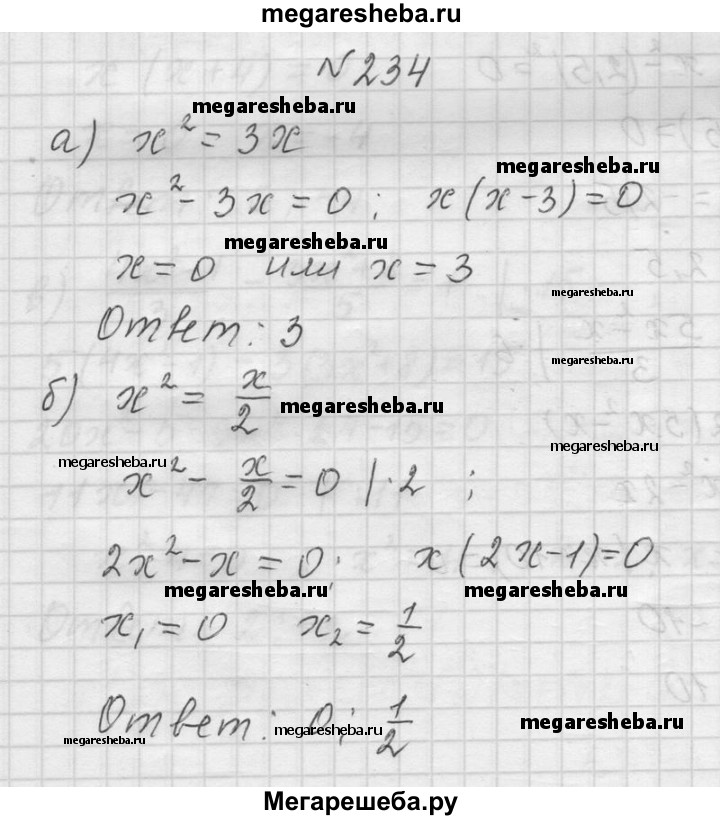 megaresheba.ru
№ 234
megaresheba.ru
а) x² = 3x
megaresheba.ru
x² - 3x = 0 ; x(x-3) = 0
megaresheba.ru
x = 0 или x = 3
megaresheba.ru
Ответ: 3
megaresheba.ru
б) x² = x/2
megaresheba.ru
megaresheba.ru
x² - x/2 = 0 | · 2 ;
2x² - x = 0; x(2x-1) = 0
megaresheba.ru megaresheba.ru
x₁ = 0 x₂ = 1/2
Ответ: 0; 1/2
megaresheba.ru megaresheba.ru megaresheba.ru
Мегарешеба.ру